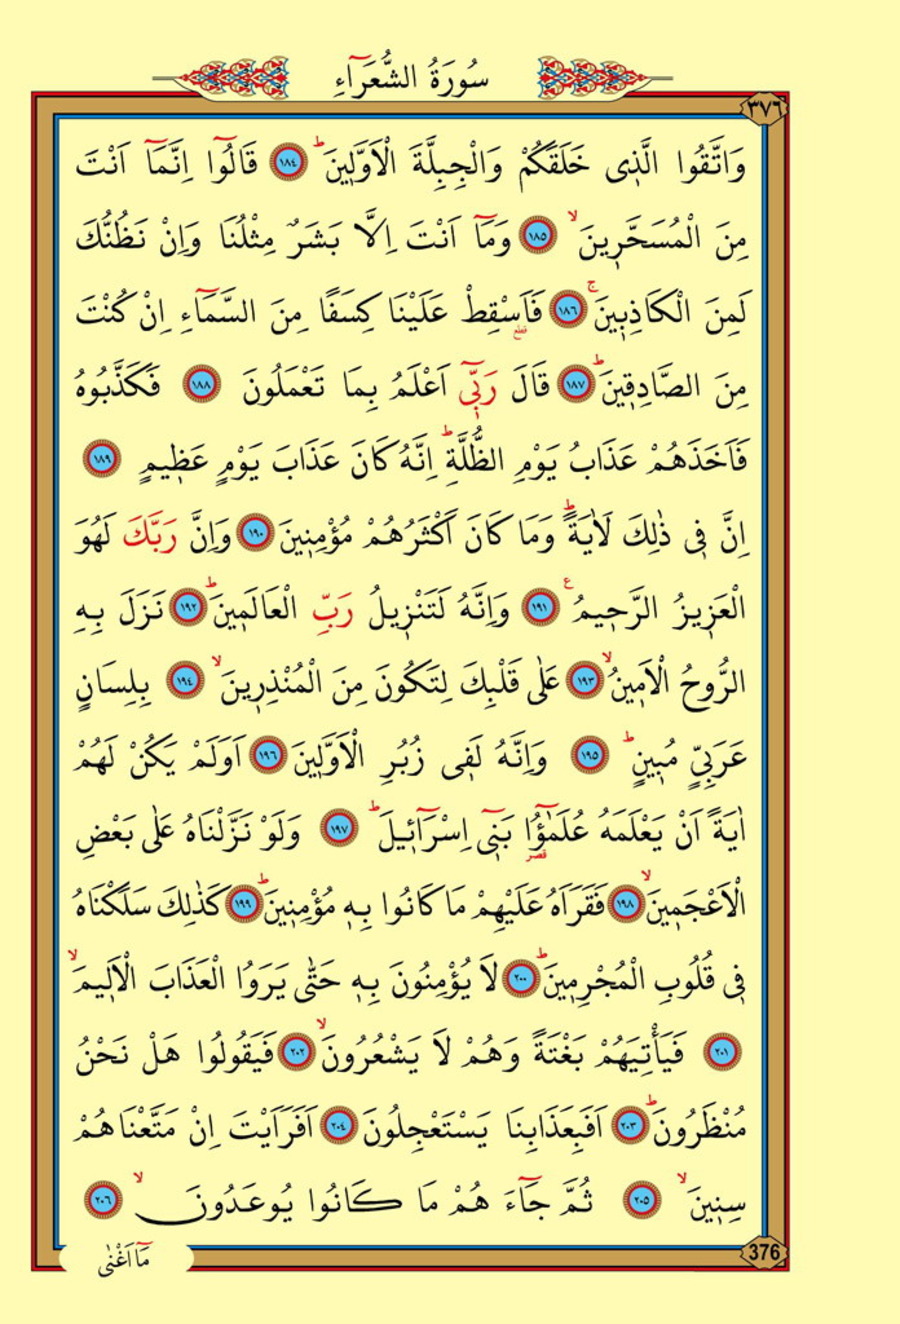 سُورَةُ الشُّعَرَٓاءِ
٣٧٦
وَاتَّقُوا الَّذٖى خَلَقَكُمْ وَالْجِبِلَّةَ الْاَوَّلٖينَ ؕ ١٨٤ قَالُٓوا اِنَّمَٓا اَنْتَ
مِنَ الْمُسَحَّرٖينَ ۙ ١٨٥ وَمَٓا اَنْتَ اِلَّا بَشَرٌ مِثْلُنَا وَاِنْ نَظُنُّكَ
لَمِنَ الْكَاذِبٖينَ ۚ ١٨٦ فَاَسْقِطْ عَلَيْنَا كِسَفًا مِنَ السَّمَٓاءِ اِنْ كُنْتَ
قطع
مِنَ الصَّادِقٖينَ ؕ ١٨٧ قَالَ رَبّٖٓى اَعْلَمُ بِمَا تَعْمَلُونَ ١٨٨ فَكَذَّبُوهُ
فَاَخَذَهُمْ عَذَابُ يَوْمِ الظُّلَّةِ ؕ اِنَّهُ كَانَ عَذَابَ يَوْمٍ عَظٖيمٍ ١٨٩
اِنَّ فٖى ذٰلِكَ لَاٰيَةً ؕ وَمَا كَانَ اَكْثَرُهُمْ مُؤْمِنٖينَ ١٩٠ وَاِنَّ رَبَّكَ لَهُوَ
الْعَزٖيزُ الرَّحٖيمُ ع ١٩١ وَاِنَّهُ لَتَنْزٖيلُ رَبِّ الْعَالَمٖينَ ؕ ١٩٢ نَزَلَ بِهِ
الرُّوحُ الْاَمٖينُ ۙ ١٩٣ عَلٰى قَلْبِكَ لِتَكُونَ مِنَ الْمُنْذِرٖينَ ۙ ١٩٤ بِلِسَانٍ
عَرَبِىٍّ مُبٖينٍ ؕ ١٩٥ وَاِنَّهُ لَفٖى زُبُرِ الْاَوَّلٖينَ ١٩٦ اَوَلَمْ يَكُنْ لَهُمْ
اٰيَةً اَنْ يَعْلَمَهُ عُلَمٰٓؤُا بَنٖٓى اِسْرَٓائٖيلَ ؕ ١٩٧ وَلَوْ نَزَّلْنَاهُ عَلٰى بَعْضِ
قصر
الْاَعْجَمٖينَ ۙ ١٩٨ فَقَرَاَهُ عَلَيْهِمْ مَا كَانُوا بِهٖ مُؤْمِنٖينَ ؕ ١٩٩ كَذٰلِكَ سَلَكْنَاهُ
فٖى قُلُوبِ الْمُجْرِمٖينَ ؕ ٢٠٠ لَا يُؤْمِنُونَ بِهٖ حَتّٰى يَرَوُا الْعَذَابَ الْاَلٖيمَ ۙ
٢٠١ فَيَأْتِيَهُمْ بَغْتَةً وَهُمْ لَا يَشْعُرُونَ ۙ ٢٠٢ فَيَقُولُوا هَلْ نَحْنُ
مُنْظَرُونَ ؕ ٢٠٣ اَفَبِعَذَابِنَا يَسْتَعْجِلُونَ ٢٠٤ اَفَرَاَيْتَ اِنْ مَتَّعْنَاهُمْ
سِنٖينَ ۙ ٢٠٥ ثُمَّ جَٓاءَ هُمْ مَا كَانُوا يُوعَدُونَ ۙ ٢٠٦
مَٓا اَغْنٰى
376